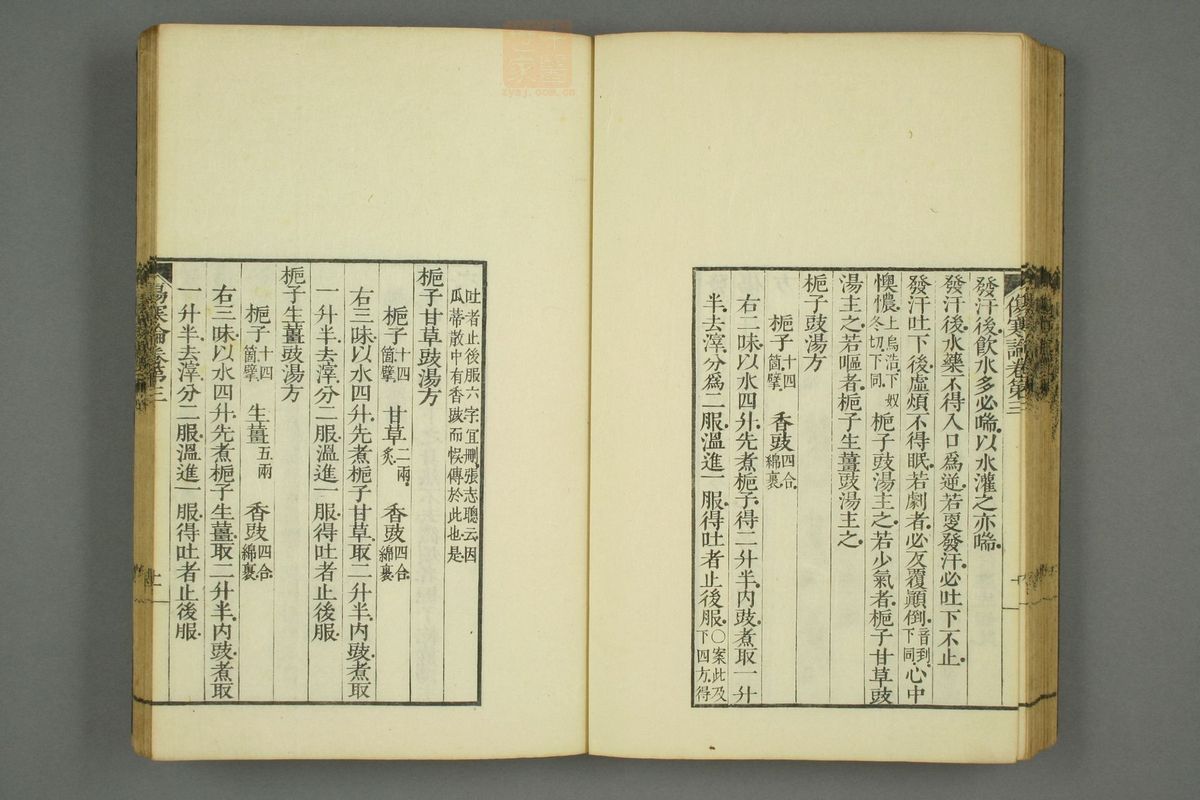 傷寒論卷第三
發汗後、飲水多必喘、以水灌之亦喘。
發汗後、水藥不得入口爲逆、若更發汗、必吐下不止。
發汗吐下後、虛煩不得眠、若劇者、必反覆顚倒、音到、下同。心中
懊憹、上烏浩、下奴冬切、下同。梔子豉湯主之、若少氣者、梔子甘草豉
湯主之、若嘔者、梔子生薑豉湯主之。
梔子豉湯方
梔子十四箇、擘。　香豉四合、綿裹。
右二味、以水四升、先煮梔子、得二升半、內豉、煮取一升
半、去滓、分爲二服、溫進一服、得吐者止後服。○案此及下四方、得
吐者止後服六字宜刪、張志聰云、因瓜蒂散中有香豉而悞傳於此也是
梔子甘草豉湯方
梔子十四箇、擘。　甘草二兩、炙。　香豉四合、綿裹。
右三味、以水四升、先煮梔子甘草、取二升半、內豉、煮取
一升半、去滓、分二服、溫進一服、得吐者止後服、
梔子生薑豉湯方
梔子十四箇、擘。　生薑五兩　香豉四合、綿裹。
右三味、以水四升、先煮梔子生薑、取二升半、內豉、煮取
一升半、去滓、分二服、溫進一服、得吐者止後服、
傷寒論卷第三
zysj.com.cn